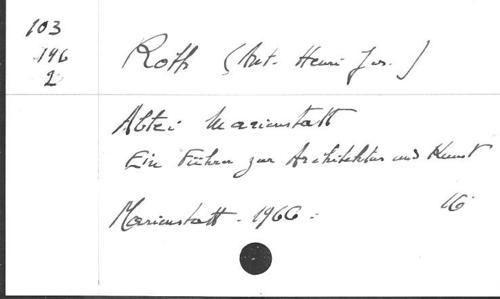 103
146
2
Roth (Ant. Henri Jos.)
Abtei Marienstatt
Ein Führer zur Architektur und Kunst
Marienstatt. 1966.
16